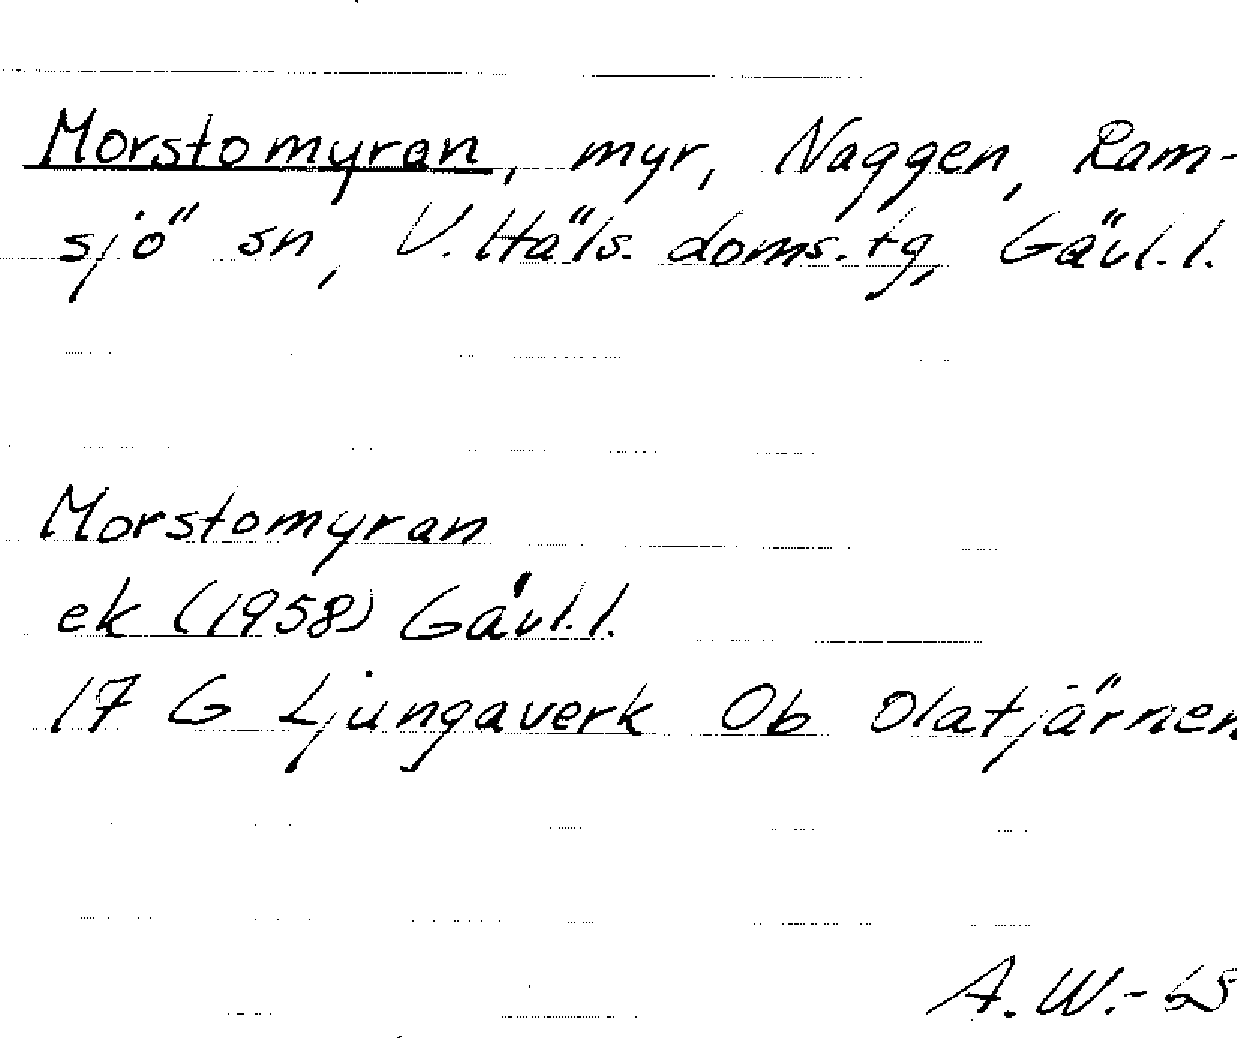 Morstomyran, myr, Naggen, Ram-
sjö sn, V. Häls. doms. tg, Gävl. l.
Morstomyran
ek (1958) Gävl. l.
17 G Ljungaverk Ob Olatjärnen
A. W. -